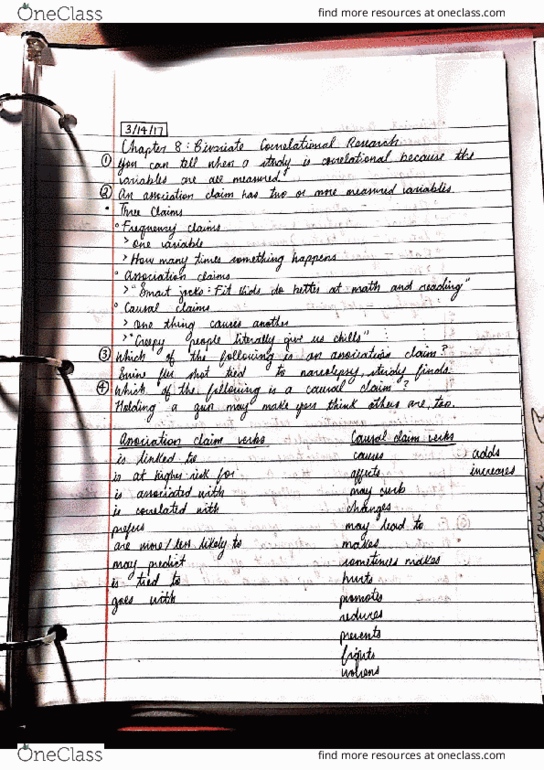 OneClass find more resources at oneclass.com
3/14/17
Chapter 8: Bivariate Correlational Research
① You can tell when a study is correlational because the
variables are all measured.
② An association claim has two or more measured variables.
• Three Claims
° Frequency claims
> One variable
> How many times something happens
° Association claims
> "Smart jocks: Fit kids do better at math and reading"
° Causal claims
> One thing causes another
> "Creepy people literally give us chills"
③ Which of the following is an association claim?
Swine flu shot tied to narcolepsy, study finds.
④ Which of the following is a causal claim?
Holding a gun may make you think others are, too.
Association claim verbs Causal claim verbs
is linked to causes adds
is at higher risk for affects increases
is associated with may curb
is correlated with changes
prefers may lead to
are more/less likely to makes
may predict sometimes makes
is tied to hurts
goes with promotes
reduces
prevents
fights
worsens
OneClass find more resources at oneclass.com